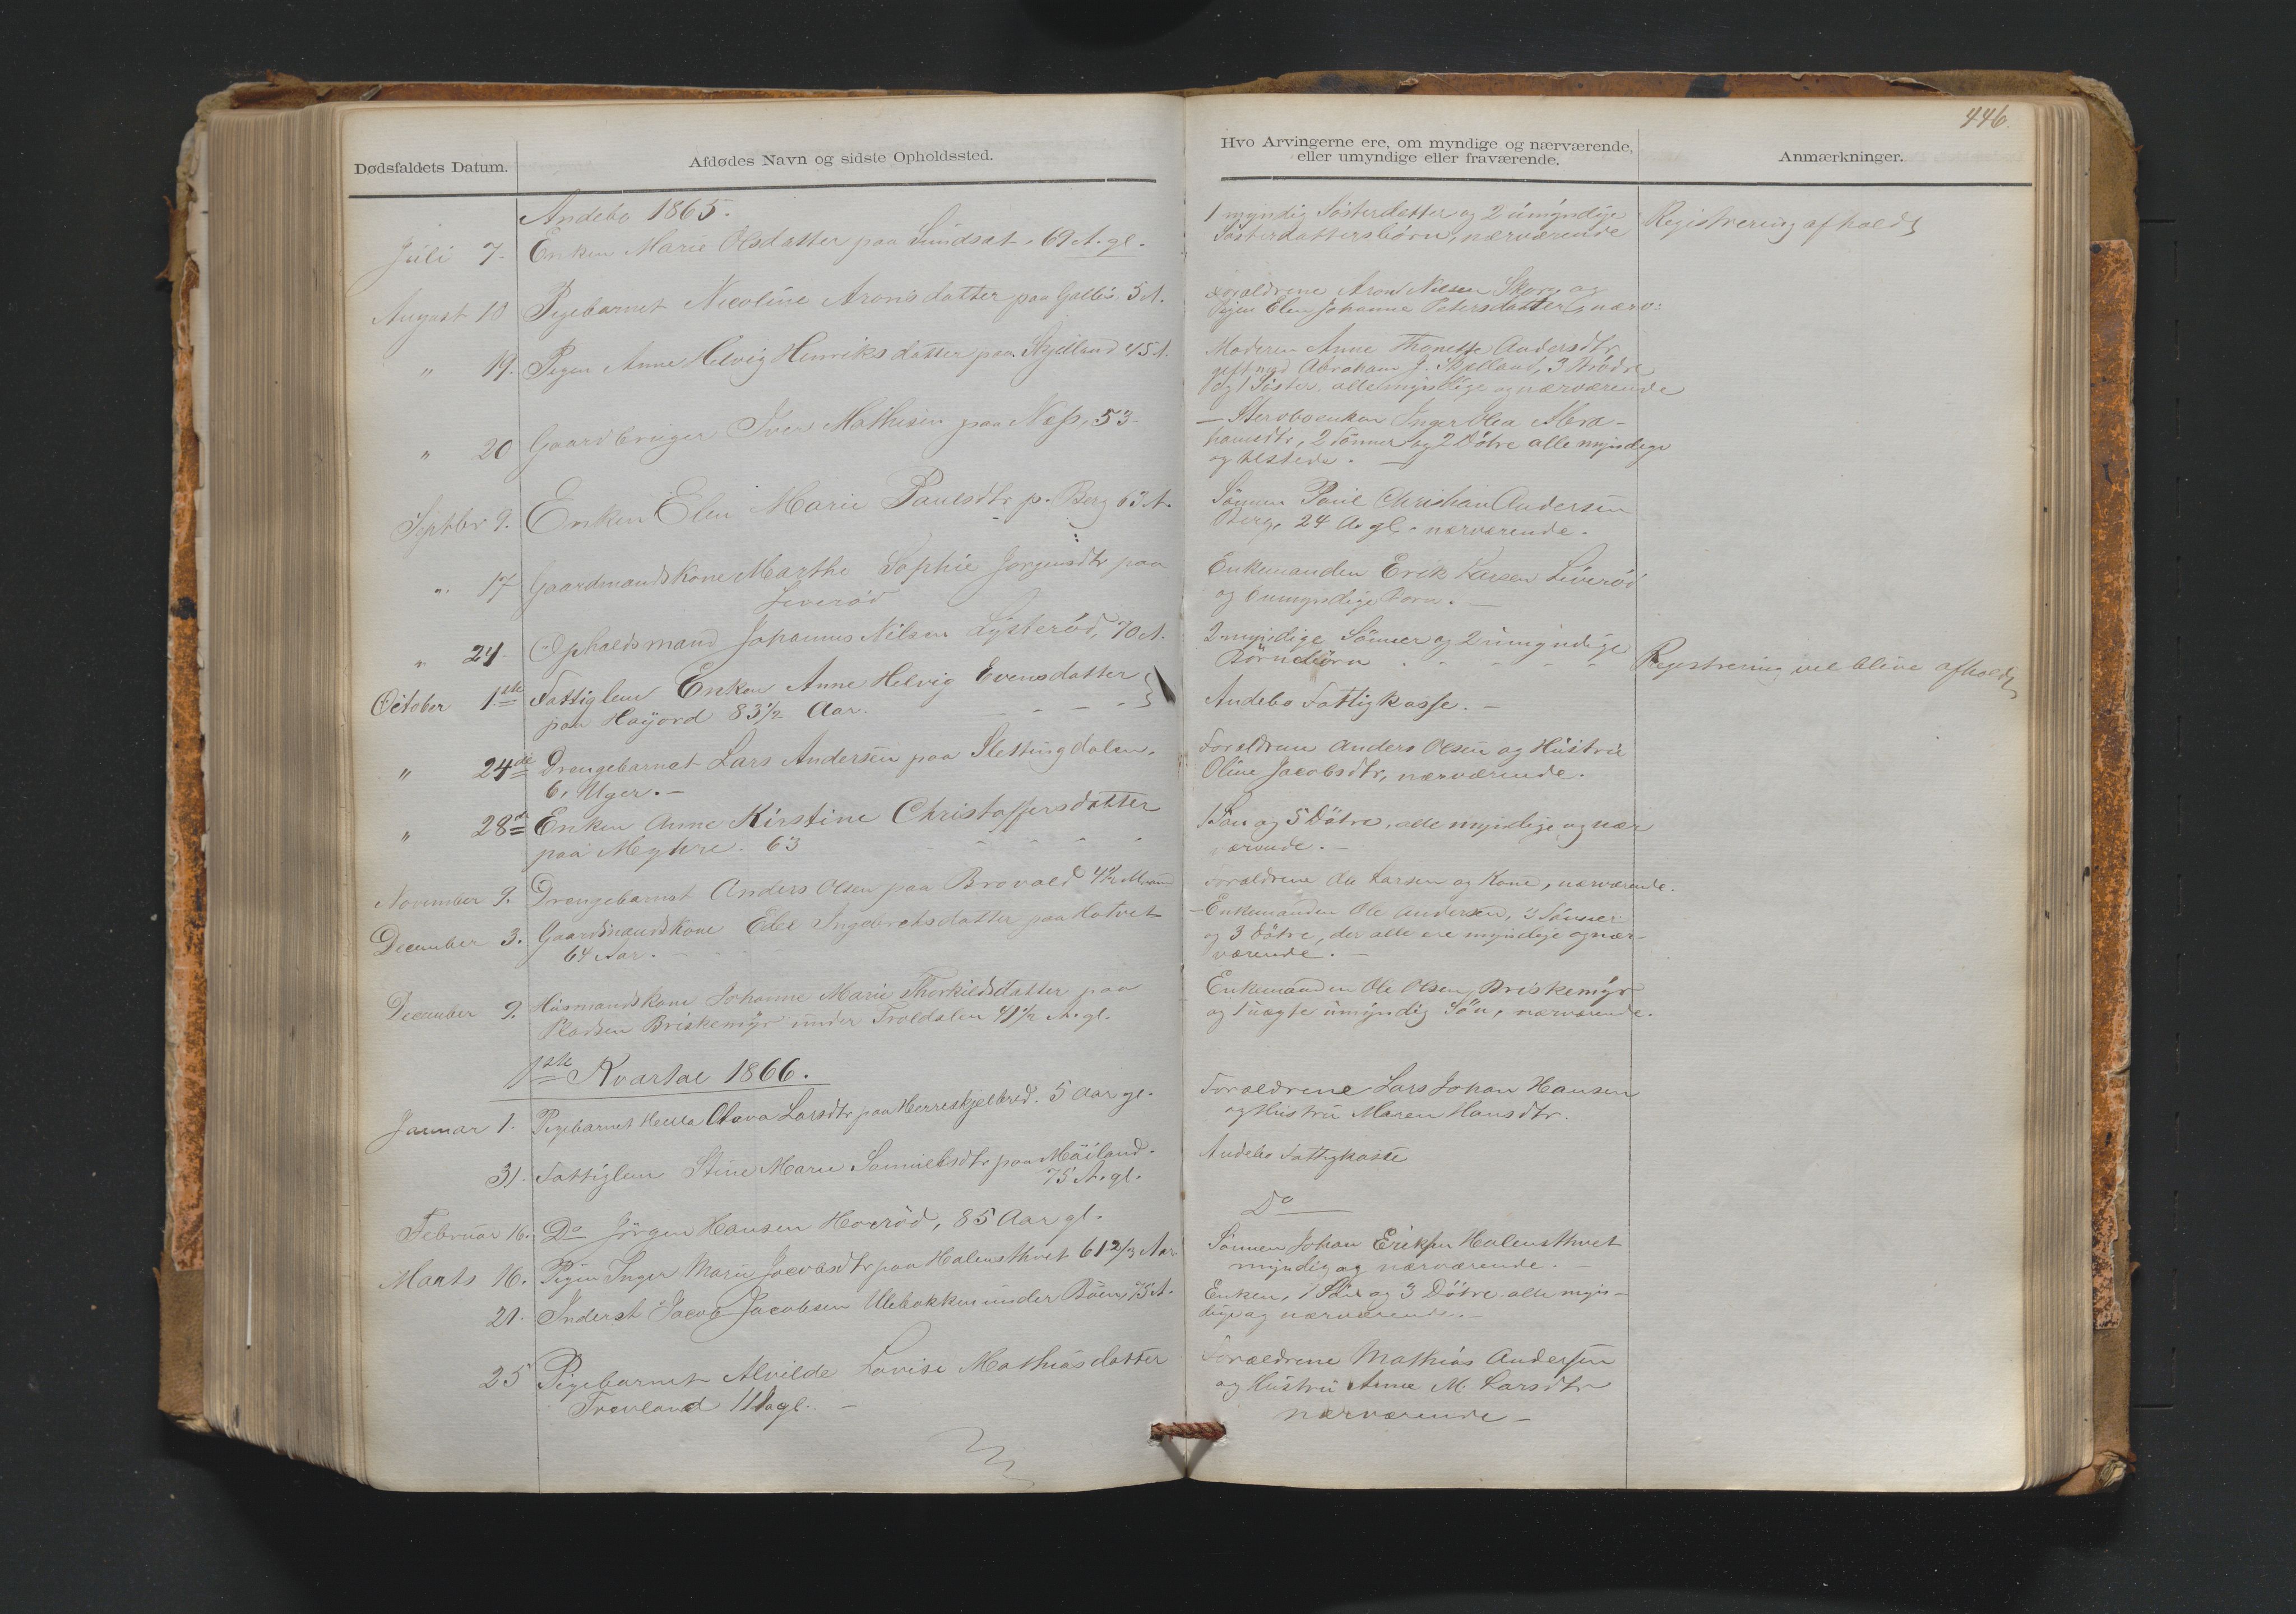 446.
Dødsfaldets Datum.
Afdødes Navn og sidste Opholdssted.
Hvo Arvingerne ere, om myndige og nærværende,
eller umyndige eller fraværende.
Anmærkninger.
Andebo 1865.
Juli 7. Enken Marie Olsdatter paa Sundsæt. 69 A. gl.
1 myndig Søsterdatter og 2 umyndige
Søsterdattersbørn, nærværende
Registrering afholdt
August 10 Pigebarnet Nicoline Aronsdatter paa 5 A.
Forældrene Aron Nilsen Skorge og
Pigen Elen Johanne Petersdatter, nærv:
" 19. Pigen Anne Helvig Henriksdatter paa Skjelland 45 A.
Moderen Anne Thonette Andersdtr
gift med Abraham J. Skjelland, 3 Brødre
og 1 Søster, alle myndige og nærværende
" 20 Gaardbruger Iver Mathisen paa Næss, 53
– Stervboenken Inger Olea Abra-
hamsdtr, 2 Sønner og 2 Døtre alle myndige
og tilstede. –
Septbr 9. Enken Elen Marie Paulsdtr p. Berg 63 A.
Sønnen Paul Christian Andersen
Berg, 24 A. gl. nærværende.
" 17 Gaardmandskone Marthe Sophie Jørgensdtr paa
Liverød
Enkemanden Erik Larsen Liverød
og 6 umyndige Børn. –
" 24. Opholdsmand Johannes Nilsen Lysterød, 70 A.
2 myndige Sønner og 2 umyndige
Børnebørn
Registrering vil blive afholdt
October 1ste Fattiglem Enken Anne Helvig Evensdatter
paa Høyord 83 1/2 Aar.
Andebo Fattigkasse. –
" 24de Drengebarnet Lars Andersen paa Slettingdalen.
6, Uger. –
Forældrene Anders Olsen og Hustru
Oline Jacobsdtr, nærværende.
" 28de Enken Anne Kirstine Christoffersdatter
paa Møyhre. 63
1 Søn og 5 Døtre, alle myndige og nær
værende. –
November 9. Drengebarnet Anders Olsen paa Brovald 4 1/2
Forældrene Ole Larsen og Kone, nærværende.
December 3. Gaardmandskone Edel Ingebretsdatter paa Hotvet
64 Aar.
– Enkemanden Ole Andersen, 3 Sønner
og 3 Døtre, der alle ere myndige og nær-
værende. –
December 9. Husmandskone Johanne Marie Thorkildsdatter paa
Pladsen Briskemyr under Troldalen 41 1/2 A. gl.
Enkemanden Ole Olsen Briskemyr
og 1 uægte umyndig Søn, nærværende.
1ste Kvartal 1866.
Januar 1. Pigebarnet Hella Olava Larsdtr paa Herreskjelbred. 5 Aar gl.
Forældrene Lars Johan Hansen
og Hustru Maren Hansdtr.
31. Fattiglem Stine Marie Samuelsdtr paa Møiland.
75 A. gl.
Andebo Fattigkasse
Februar 16. Do Jörgen Hansen Hoverød, 85 Aar gl.
Do
Marts 16. Pigen Inger Marie Jacobsdtr paa Halensthvet 61 2/3 Aar
Sønnen Johan Eriksen Halensthvet
myndig og nærværende. –
21. Inderst Jacob Jacobsen Ulebakken under Bøen, 75 A.
Enken, 1 Søn og 3 Døtre alle myn-
dige og nærværende. –
25 Pigebarnet Alvilde Lovise Mathiasdatter
Trevland 11 gl. –
Forældrene Mathias Andersen
og Hustru Anne M. Larsdtr
nærværende –